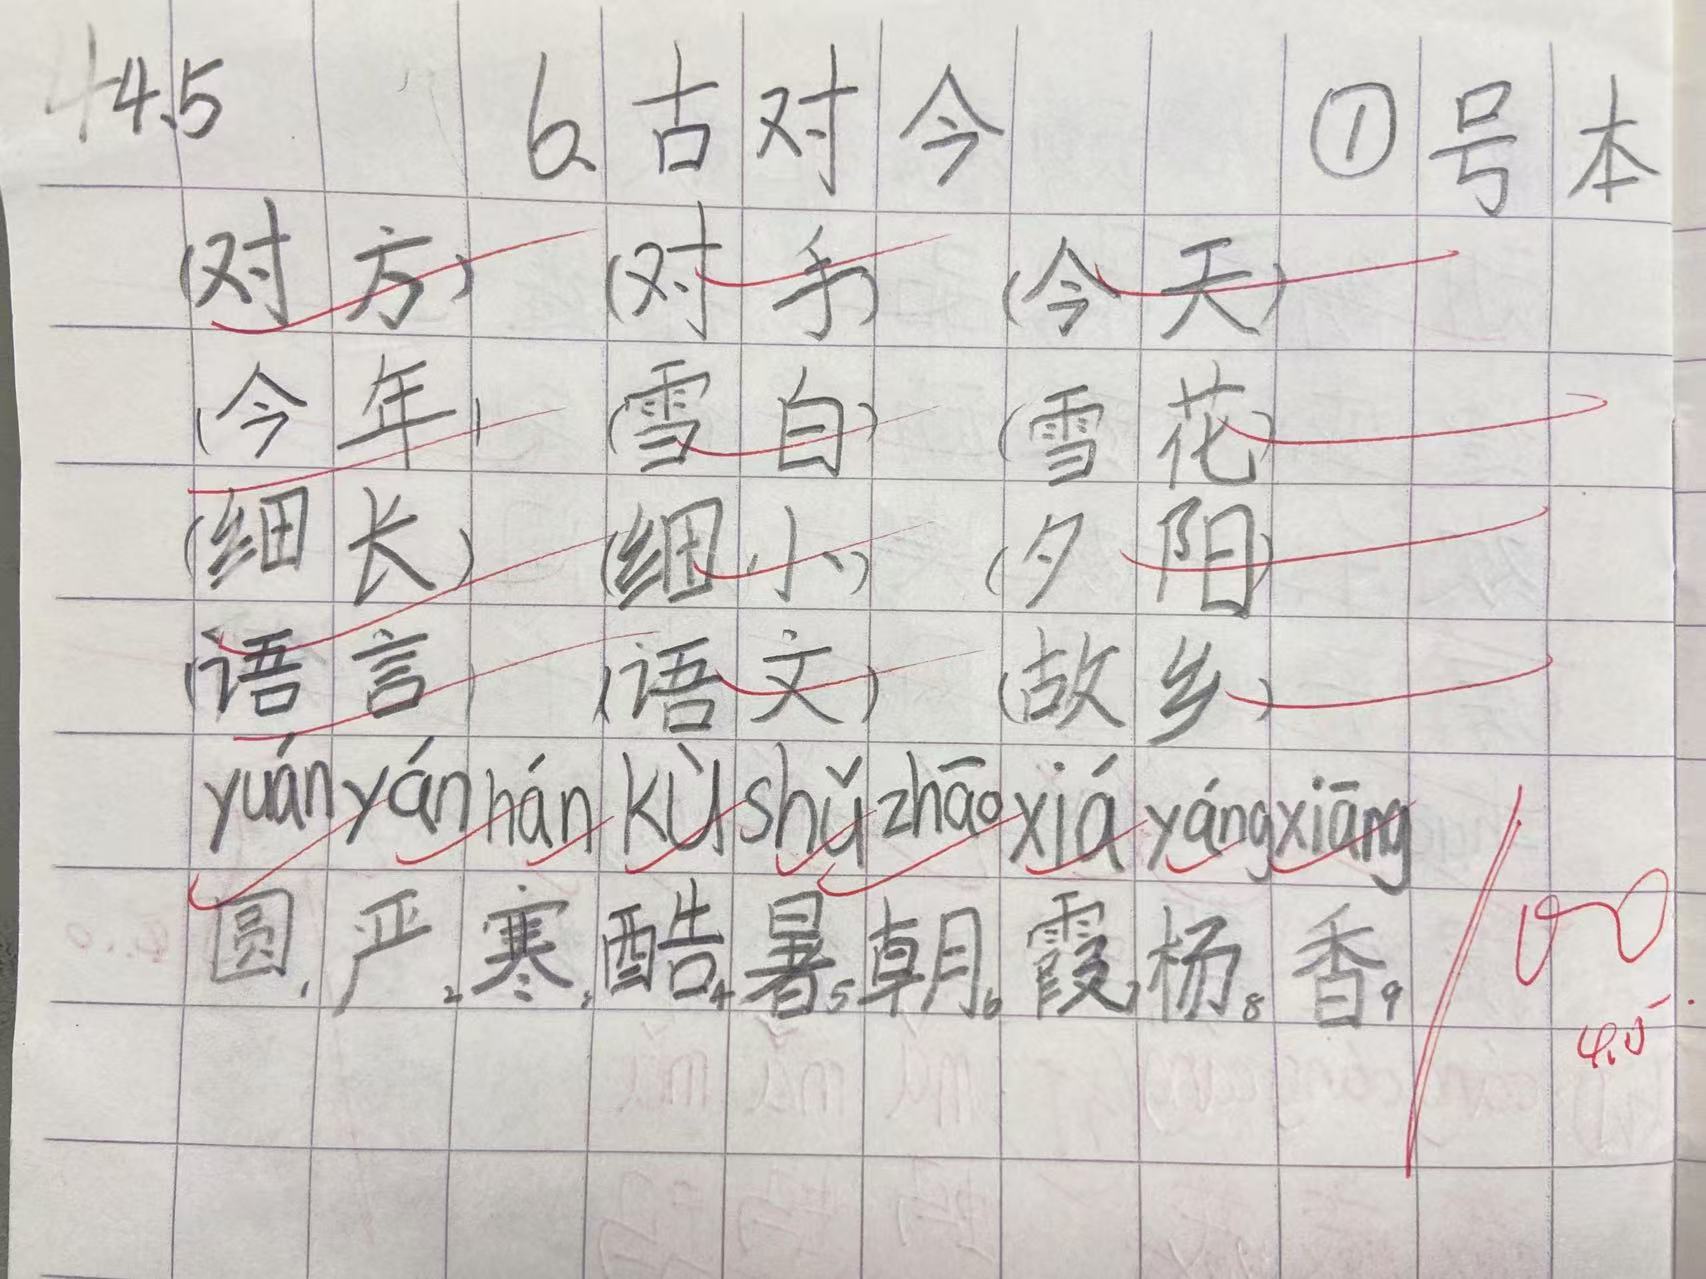 4.5 6.古对今 ①号本
(对方) (对手) (今天)
(今年) (雪白) (雪花)
(细长) (细小) (夕阳)
(语言) (语文) (故乡)
yuán yán hán kù shǔ zhāo xiá yáng xiāng
圆1 严2 寒3 酷4 暑5 朝6 霞7 杨8 香9
100
4.5